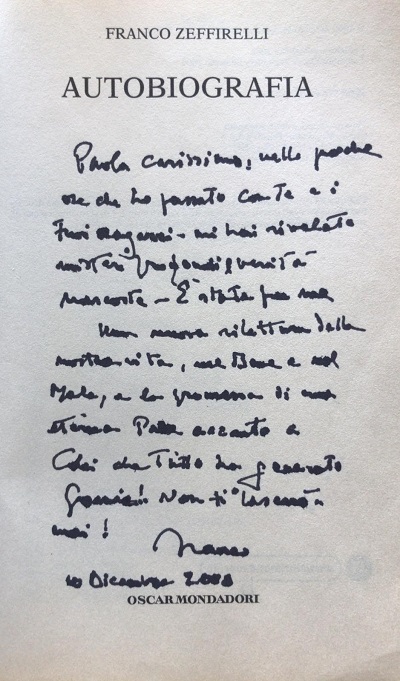 FRANCO ZEFFIRELLI
AUTOBIOGRAFIA
Paola carissima, nelle poche
ore che ho passato con te e i
tuoi ragazzi - mi hai rivelato
misteri profondi e verità
nascoste - È stata per me
una nuova rilettura della
nostra vita, nel Bene e nel
Male, e la promessa di una
eterna Pace accanto a
Colui che Tutto ha generato
Grazie! Non ti lascerò
mai!
Franco
10 Dicembre 2000
OSCAR MONDADORI